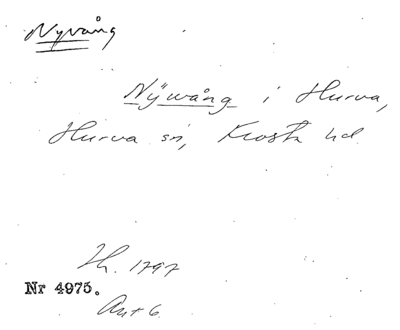 Nyvång
Nÿwång i Hurva,
Hurva sn, Frosta hd
1797
Nr 4975.
Akt 6.